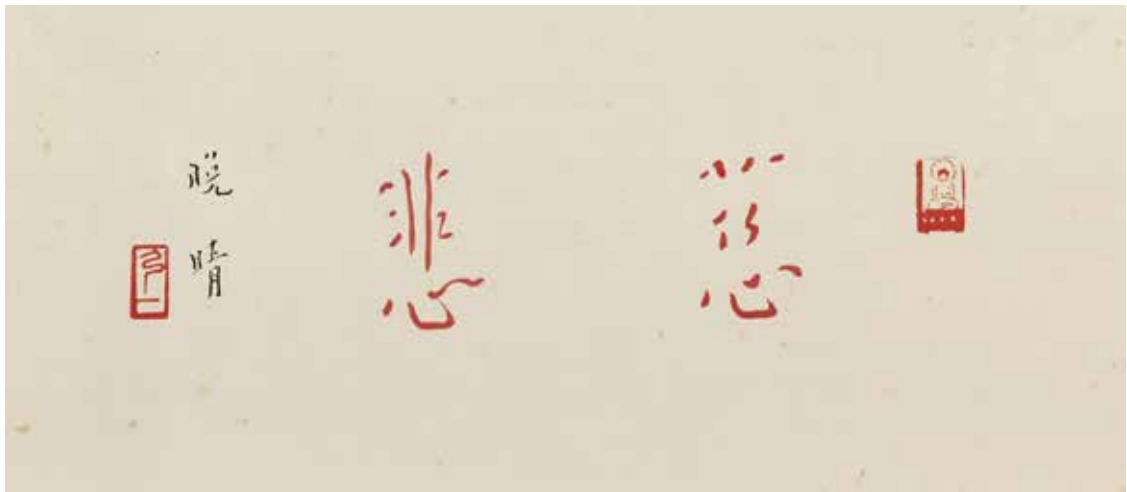 慈悲
晚晴
弘一